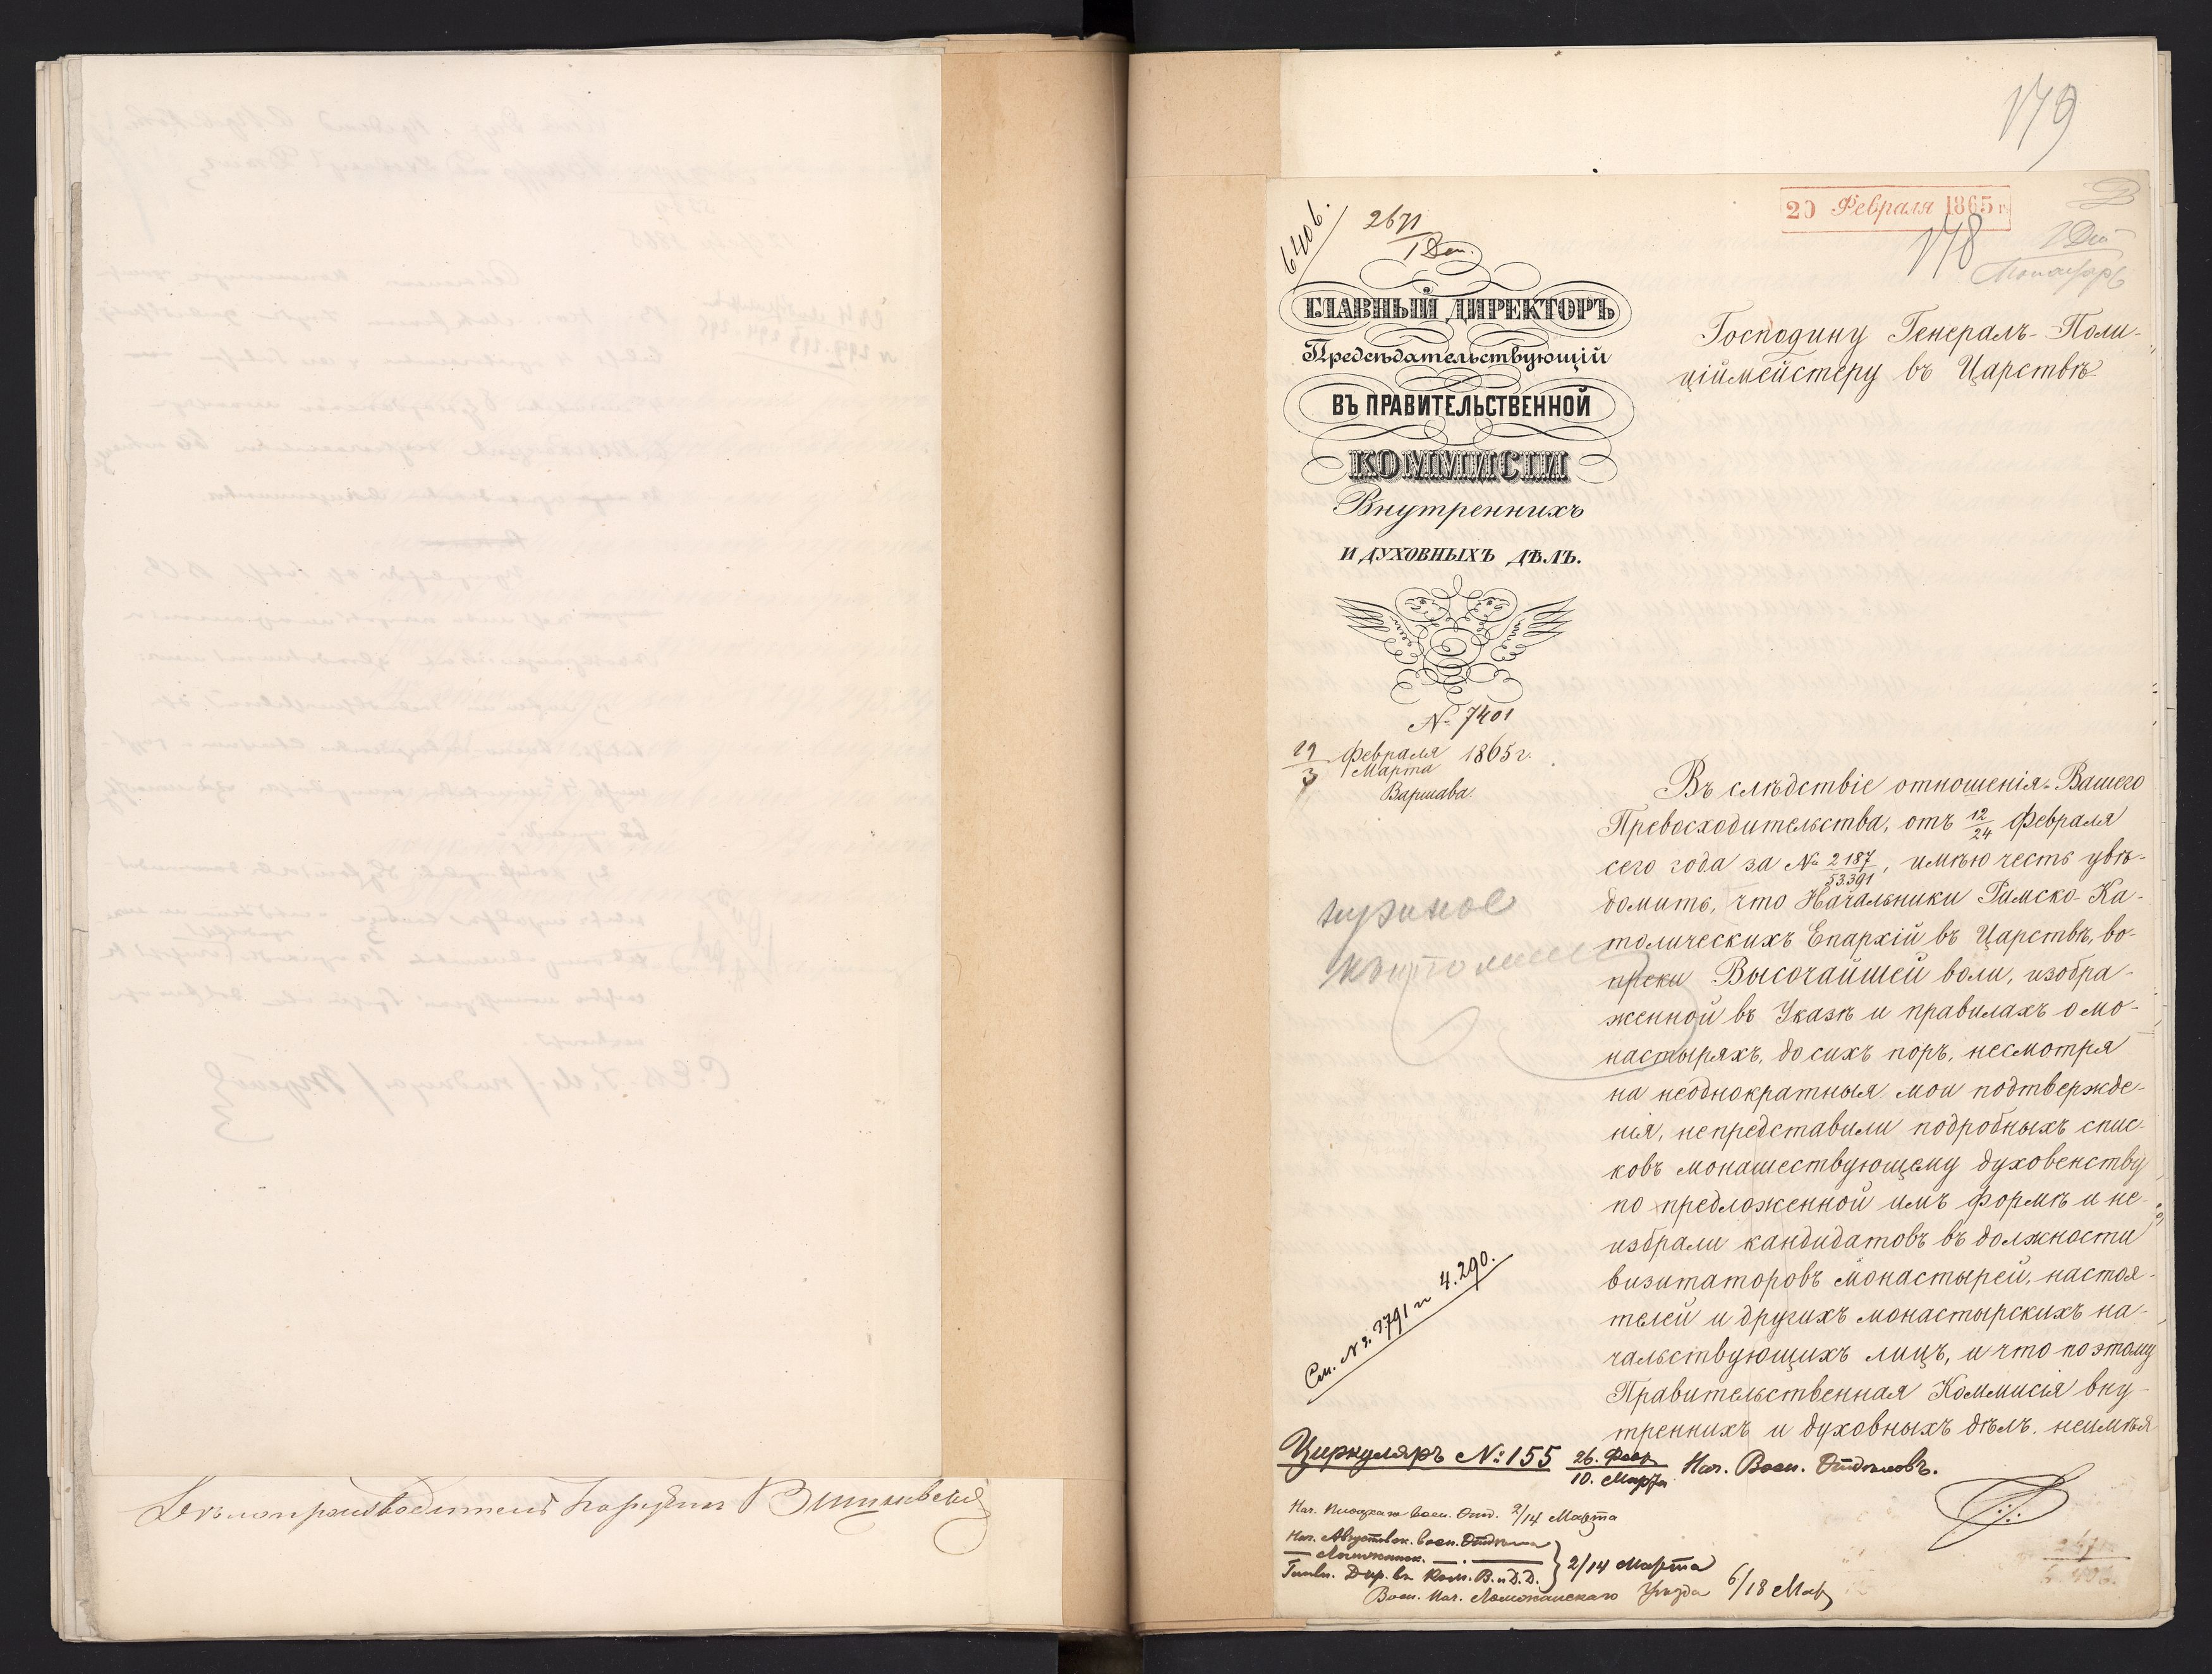 Дѣлопроизводитель
179
20 Февраля 1865 г.
178
6406.
2671
1 Деп.
ГЛАВНЫЙ ДИРЕКТОРЪ
Предсѣдательствующій
ВЪ ПРАВИТЕЛЬСТВЕННОЙ
КОММИСІИ
Внутреннихъ
И ДУХОВНЫХЪ ДѢЛЪ.
№ 7401
19/3 Февраля/Марта 1865 г.
Варшава.
Господину Генералъ-Поли-
ціймейстеру въ Царствѣ
Въ слѣдствіе отношенія Вашего
Превосходительства, отъ 12/24 Февраля
сего года за № 2187/53391, имѣю честь увѣ-
домить, что Начальники Римско-Ка-
толическихъ Епархій въ Царствѣ, во-
преки Высочайшей воли, изобра-
женной въ Указѣ и правилахъ о мо-
настыряхъ, до сихъ поръ, несмотря
на неоднократныя мои подтвержде-
нія, непредставили подробныхъ спис-
ковъ монашествующему духовенству
по предложенной имъ формѣ и не-
избрали кандидатовъ въ должности
визитаторовъ монастырей, настоя-
телей и другихъ монастырскихъ на-
чальствующихъ лицъ, и что поэтому
Правительственная Коммисія вну-
треннихъ и духовныхъ дѣлъ, неимѣя
См. № 3791 и 4.290.
Циркуляръ №: 155 26. Февр/10. Марта Нач. Воен. Отдѣловъ.
Нач. Плоцкаго Воен. Отд. 2/14 Марта
Нач. Августовск. Воен. Отдѣла
— Ломжинск. — . —
Главн. Дир. въ Ком. В. и Д. Д. } 2/14 Марта
Воен. Нач. Ломжинскаго Уѣзда 6/18 Мар